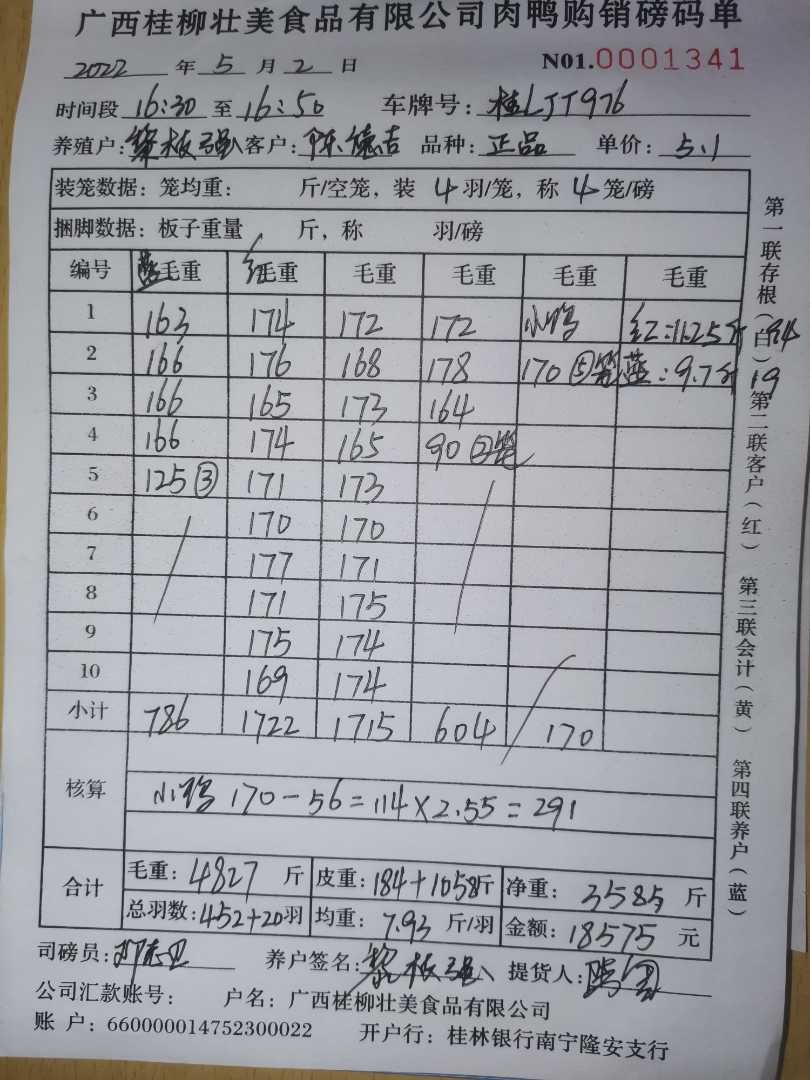 广西桂柳壮美食品有限公司肉鸭购销磅码单
2022 年 5 月 2 日 NO1.0001341
时间段 16:30 至 16:50 车牌号: 桂LJT976
养殖户: 黎板强 客户: 陈德吉 品种: 正品 单价: 5.1
装笼数据: 笼均重: 斤/空笼, 装 4 羽/笼, 称 4 笼/磅
捆脚数据: 板子重量 斤, 称 羽/磅
编号 蓝毛重 红毛重 毛重 毛重 毛重 毛重
1 163 174 172 172 小鸭 红:11.25斤 94
2 166 176 168 178 170 ⑤笼 蓝:9.7斤 19
3 166 165 173 164
4 166 174 165 90 ②笼
5 125 ③ 171 173
6 170 170
7 177 171
8 171 175
9 175 174
10 169 174
小计 786 1722 1715 604 170
核算 小鸭 170-56=114×2.55=291
合计 毛重: 4827 斤 皮重: 184+1058斤 净重: 3585 斤
总羽数: 452+20羽 均重: 7.93 斤/羽 金额: 18575 元
司磅员: 养户签名: 黎板强 提货人:
公司汇款账号: 户名: 广西桂柳壮美食品有限公司
账 户: 660000014752300022 开户行: 桂林银行南宁隆安支行
第一联存根(白) 第二联客户(红) 第三联会计(黄) 第四联养户(蓝)